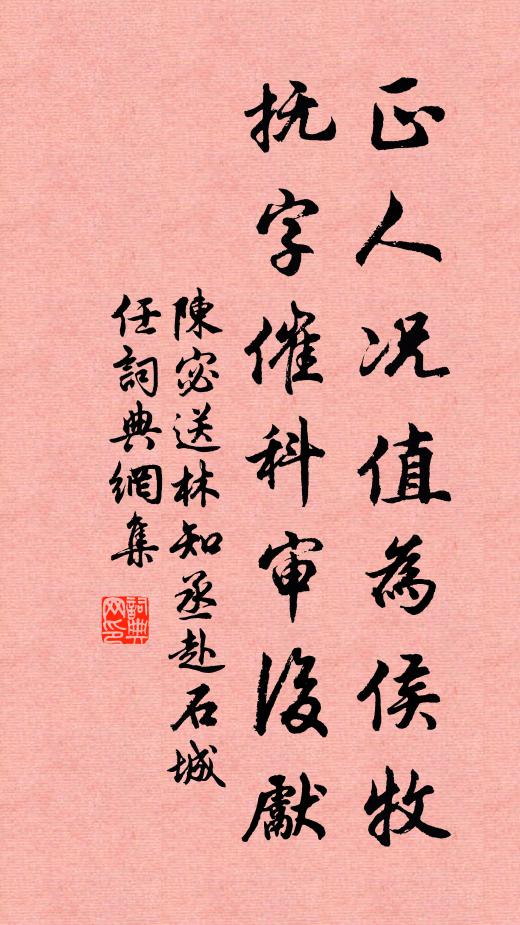 正人况值為侯牧
抚字催科审後獻
陳宓送林知丞赴石城
任詞典網集
詞典网印